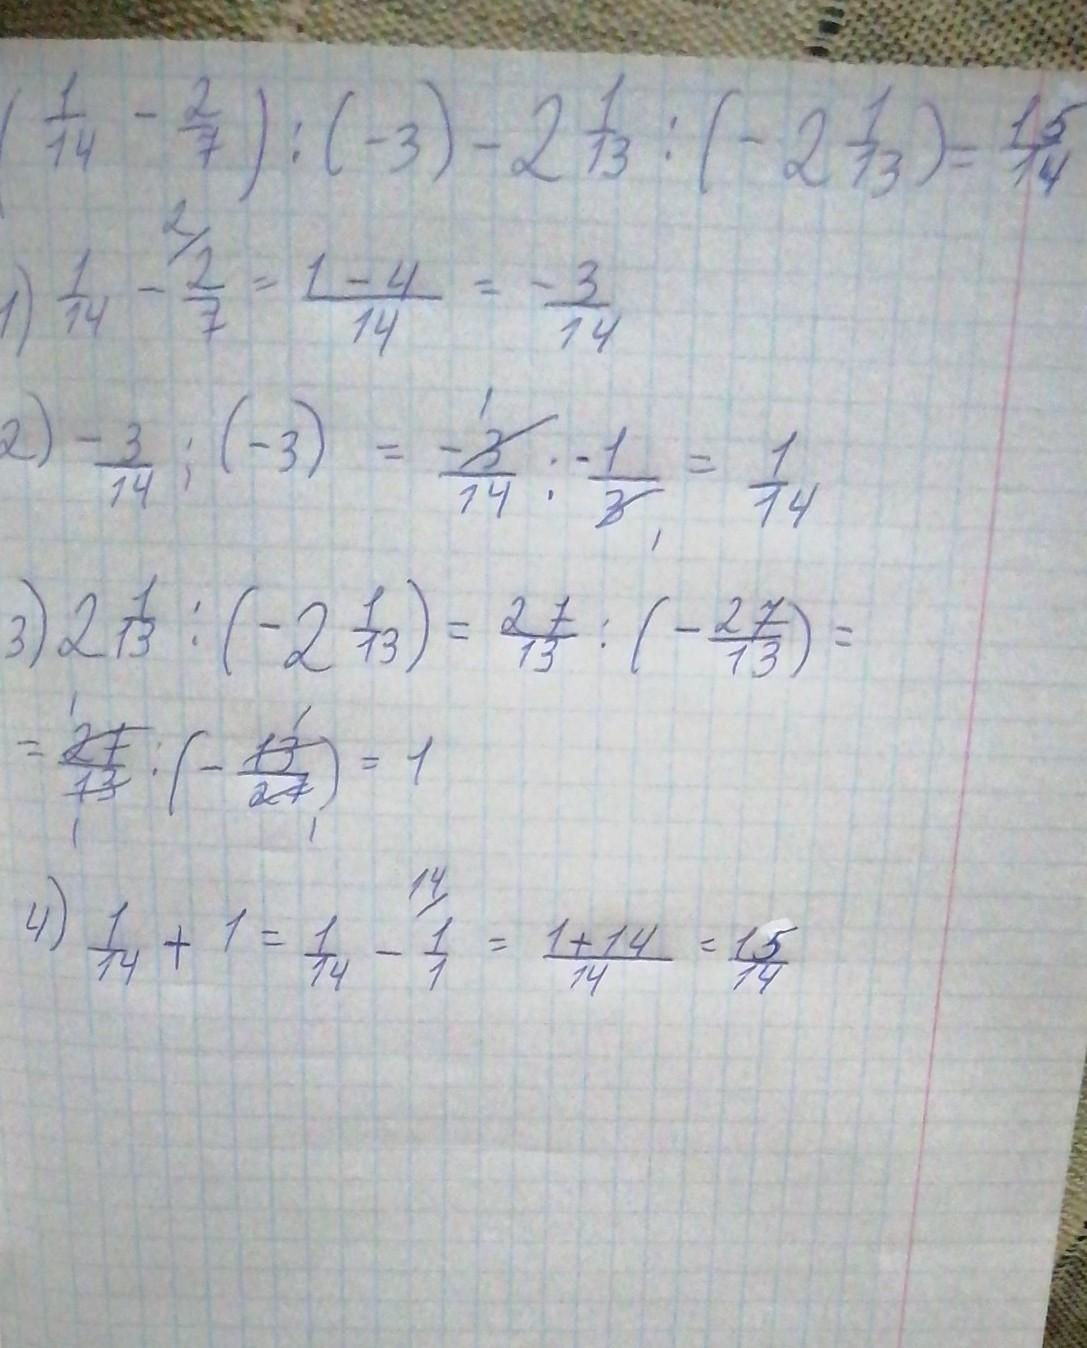 (1/14 - 2/7) : (-3) - 2 1/13 : (-2 1/13) = 15/14
1) 1/14 - 2/ 2/7 = 1-4/14 = -3/14
2) -3/14 : (-3) = -3/14 : -1/3 = 1/14
3) 2 1/13 : (-2 1/13) = 27/13 : (-27/13) =
= 27/13 : (-13/27) = 1
4) 1/14 + 1 = 1/14 - 14/ 1/1 = 1+14/14 = 15/14